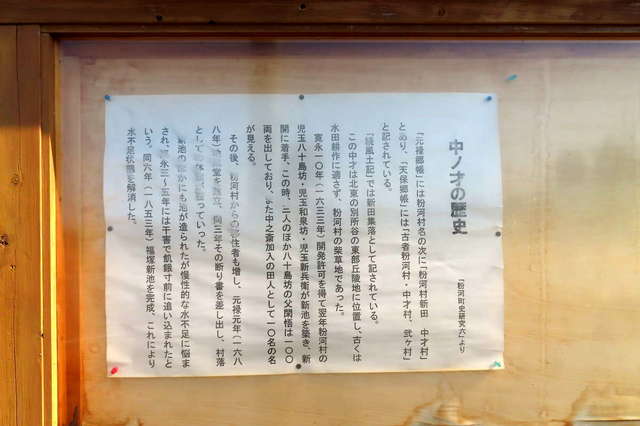 中ノ才の歴史
「粉河町史研究六」より
「元禄郷帳」には粉河村名の次に「粉河村新田 中才村」
とあり、「天保郷帳」には「古者粉河村・中才村、弐ヶ村」
と記されている。
「続風土記」では新田集落として記されている。
この中才は北東の別所谷の東部丘陵地に位置し、古くは
水田耕作に適さず、粉河村の柴草地であった。
寛永一〇年(一六三三年)開発許可を得て翌年粉河村の
児玉八十島坊・児玉和泉坊・児玉新兵衛が新池を築き、新
開に着手、この時、三人のほか八十島坊の父閑悟は一〇〇
両を出しており、また中之斎加入の田人として一〇名の名
が見える。
その後、粉河村からの移住者も増し、元禄元年(一六八
八年)建立、同三年その断り書を差し出し、村落
としての整っていった。
新池のほかにも池が造られたが慢性的な水不足に悩ま
され、永三〜五年には干害で飢餓寸前に追い込まれたと
いう。同六年(一八五三年)福塚新池を完成、これにより
水不足状態を解消した。